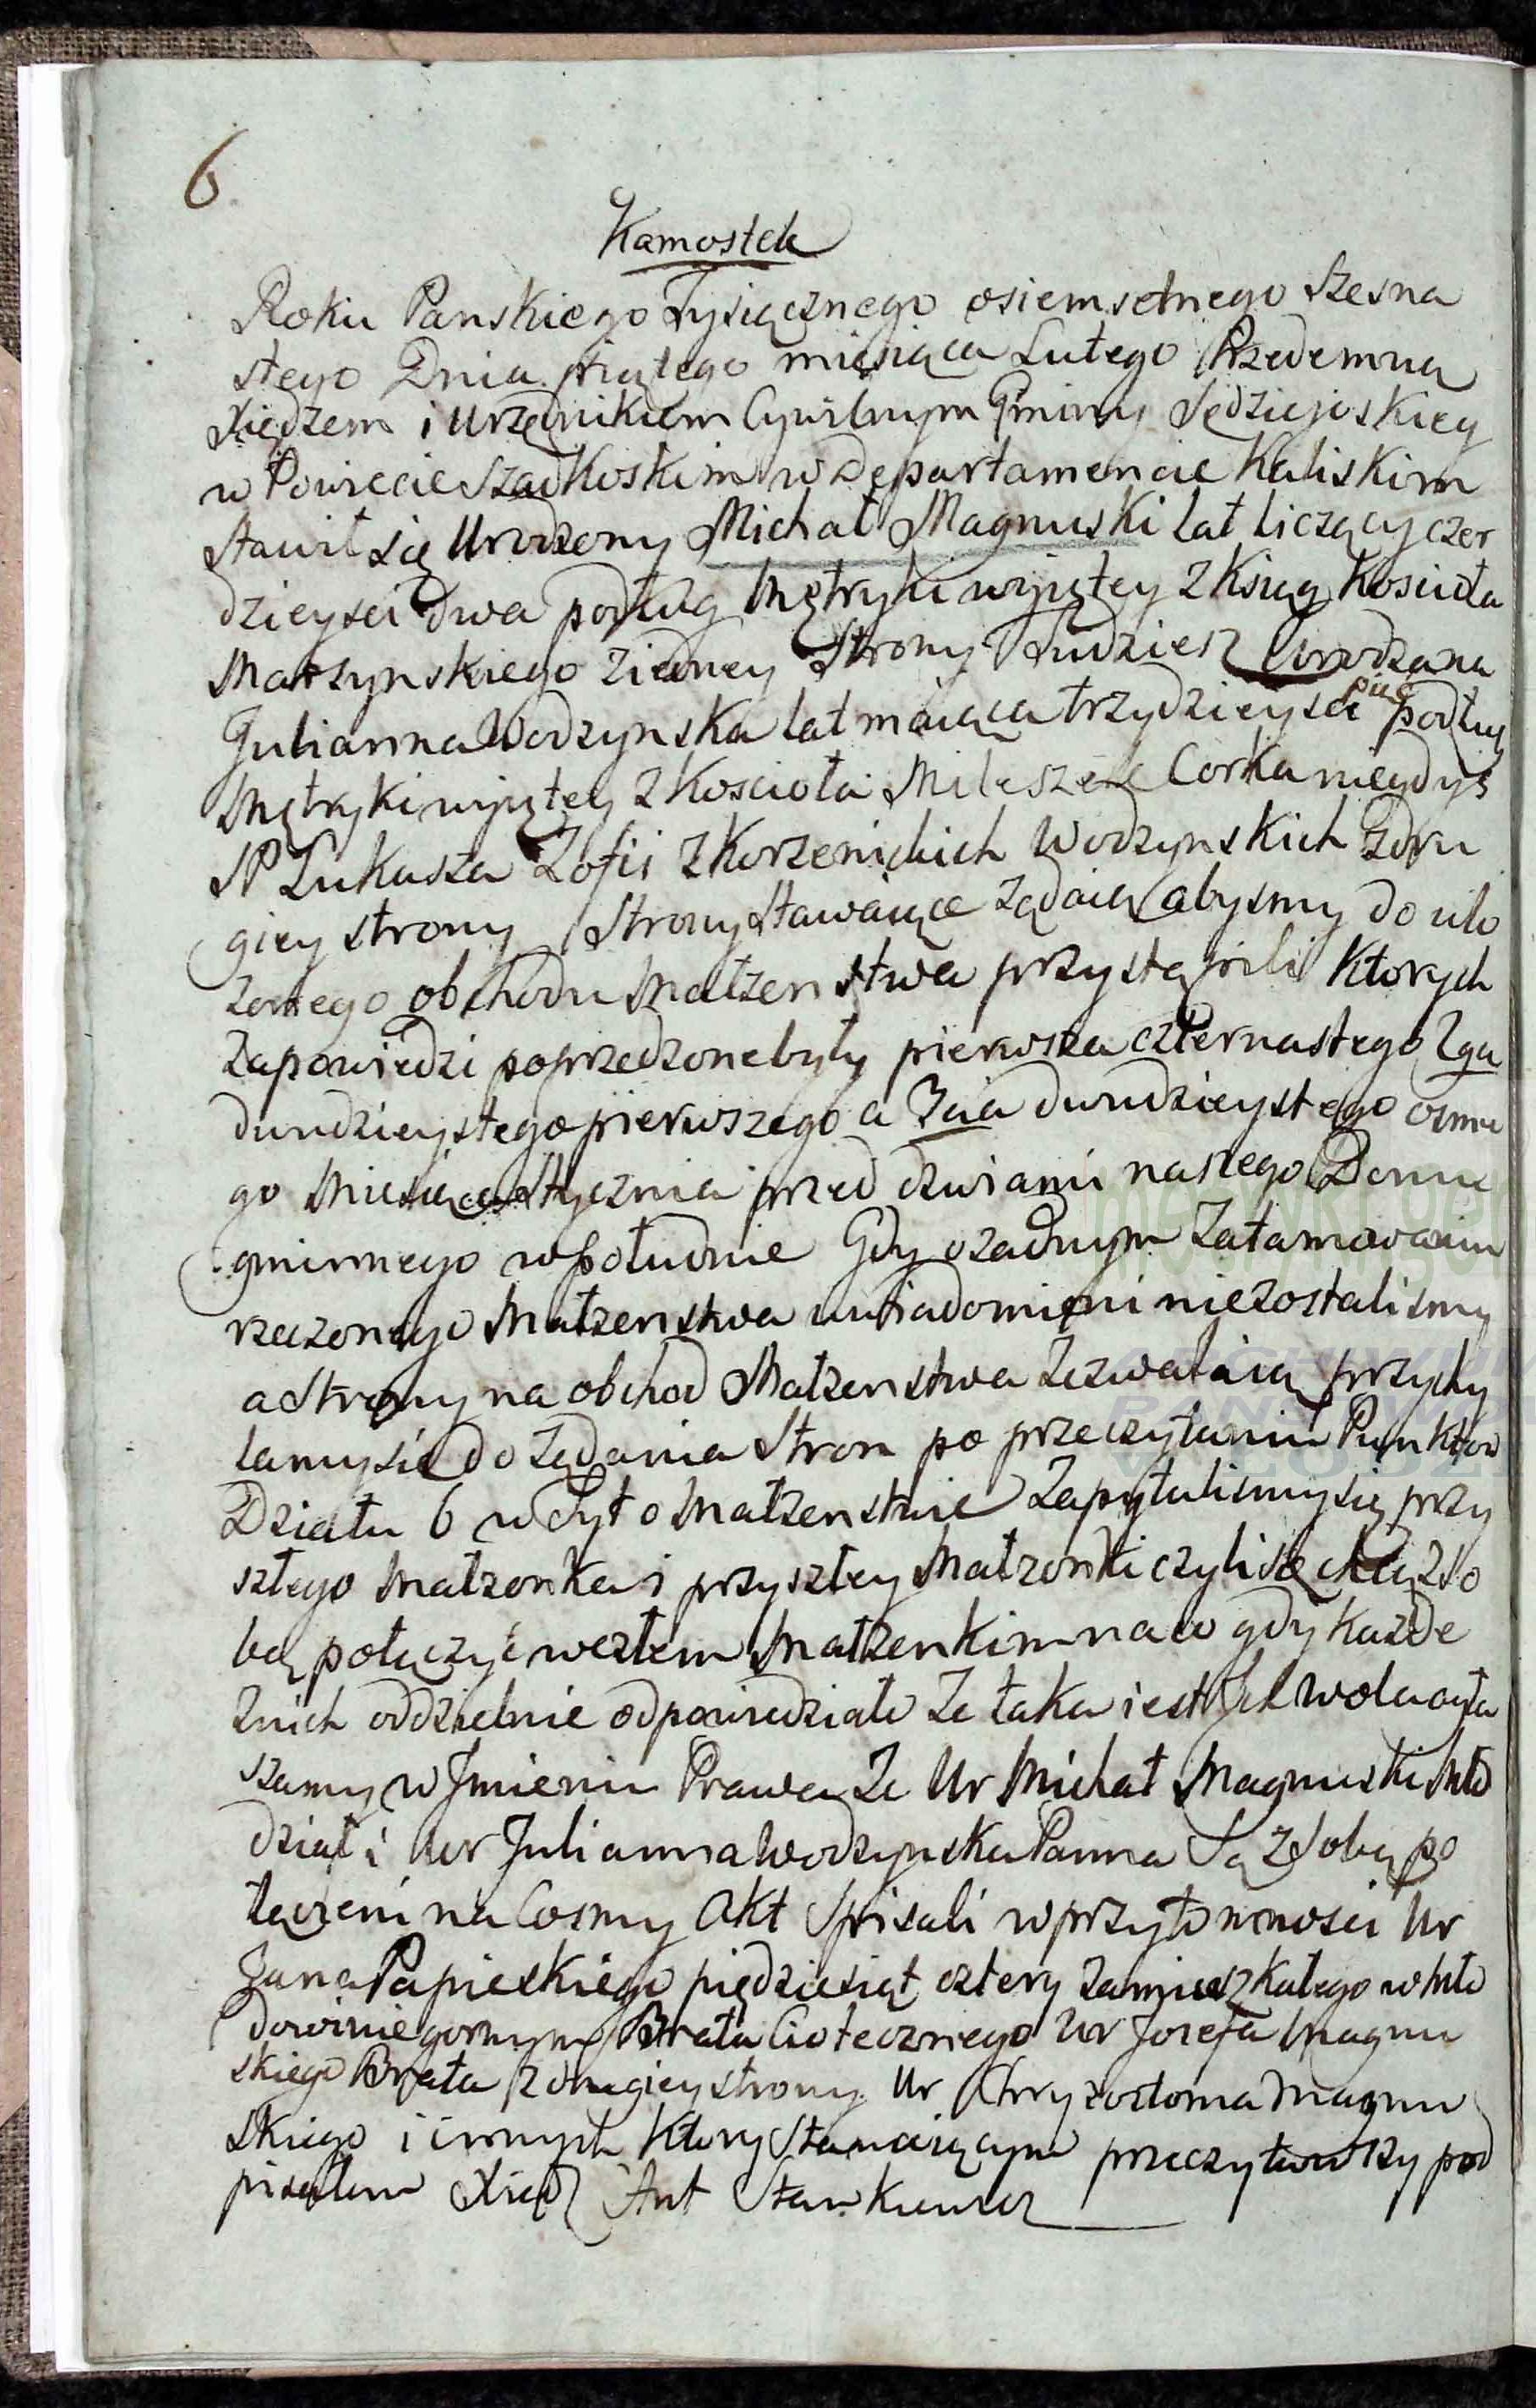 6
Kamostek
Roku Panskiego Tysiącznego osiemsetnego Szesna
stego Dnia piątego miesiąca Lutego Przedemną
Xiędzem i Urzędnikiem Cywilnym Gminy Sędziejoskiey
w Powiecie Szadkoskim w Departamencie Kaliskim
Stawił się Urodzony Michał Magnuski lat liczący czter
dzieysci dwa podług Metryki wyiętey z Ksiąg Koscioła
Marzynskiego z iedney Strony Tudziesz Urodzona
Julianna Wodzynska lat maiąca trzydzieysci pięc podług
Metryki wyiętey z Koscioła Mileszek Corka niegdys
N Łukasza Zofii z Korzenickich Wodzynskich z dru
giey strony Strony Stawaiące żądaią abysmy do uło
żonego obchodu Małzenstwa przystąpili Ktorych
Zapowiedzi poprzedzone były pierwsza czternastego 2ga
dwudziestego pierwszego a 3cia dwudzieystego osme
go Miesiąca Stycznia przed dzwiami naszego Domu
gminnego w południe Gdy o zadnym Zatamowaniu
rzeczonego Małzenstwa uwiadomieni niezostalismy
a Strony na obchod Małzenstwa Zezwalaią przychy
lamy się do Ządania Stron po przeczytaniu Punktow
Działu 6 w Tyt o Małzenstwie Zapytalismy się przy
szłego Małzonka i przyszłey Małzonki czyli się chcą z so
bą połączyć węzłem Małzenkim na co gdy Kazde
z nich oddzielnie odpowiedziało Ze taka iest Ich wola ogła
szamy w Jmieniu Prawa Ze Ur Michał Magnuski Mło
dzian i Ur Julianna Wodzynska Panna Są z Sobą po
łączeni na Cosmy Akt Spisali w przytomnosci Ur
Jana Papieskiego piędziesiąt cztery zamieszkałego w Mło
dowinie gornym Brata Ciotecznego Ur Jozefa Magnu
skiego Brata z drugiey strony Ur Chryzostoma Magnu
skiego i innych Ktory Stawaiącym przeczytawszy pod
pisałem Xiądz Ant Stankiewicz